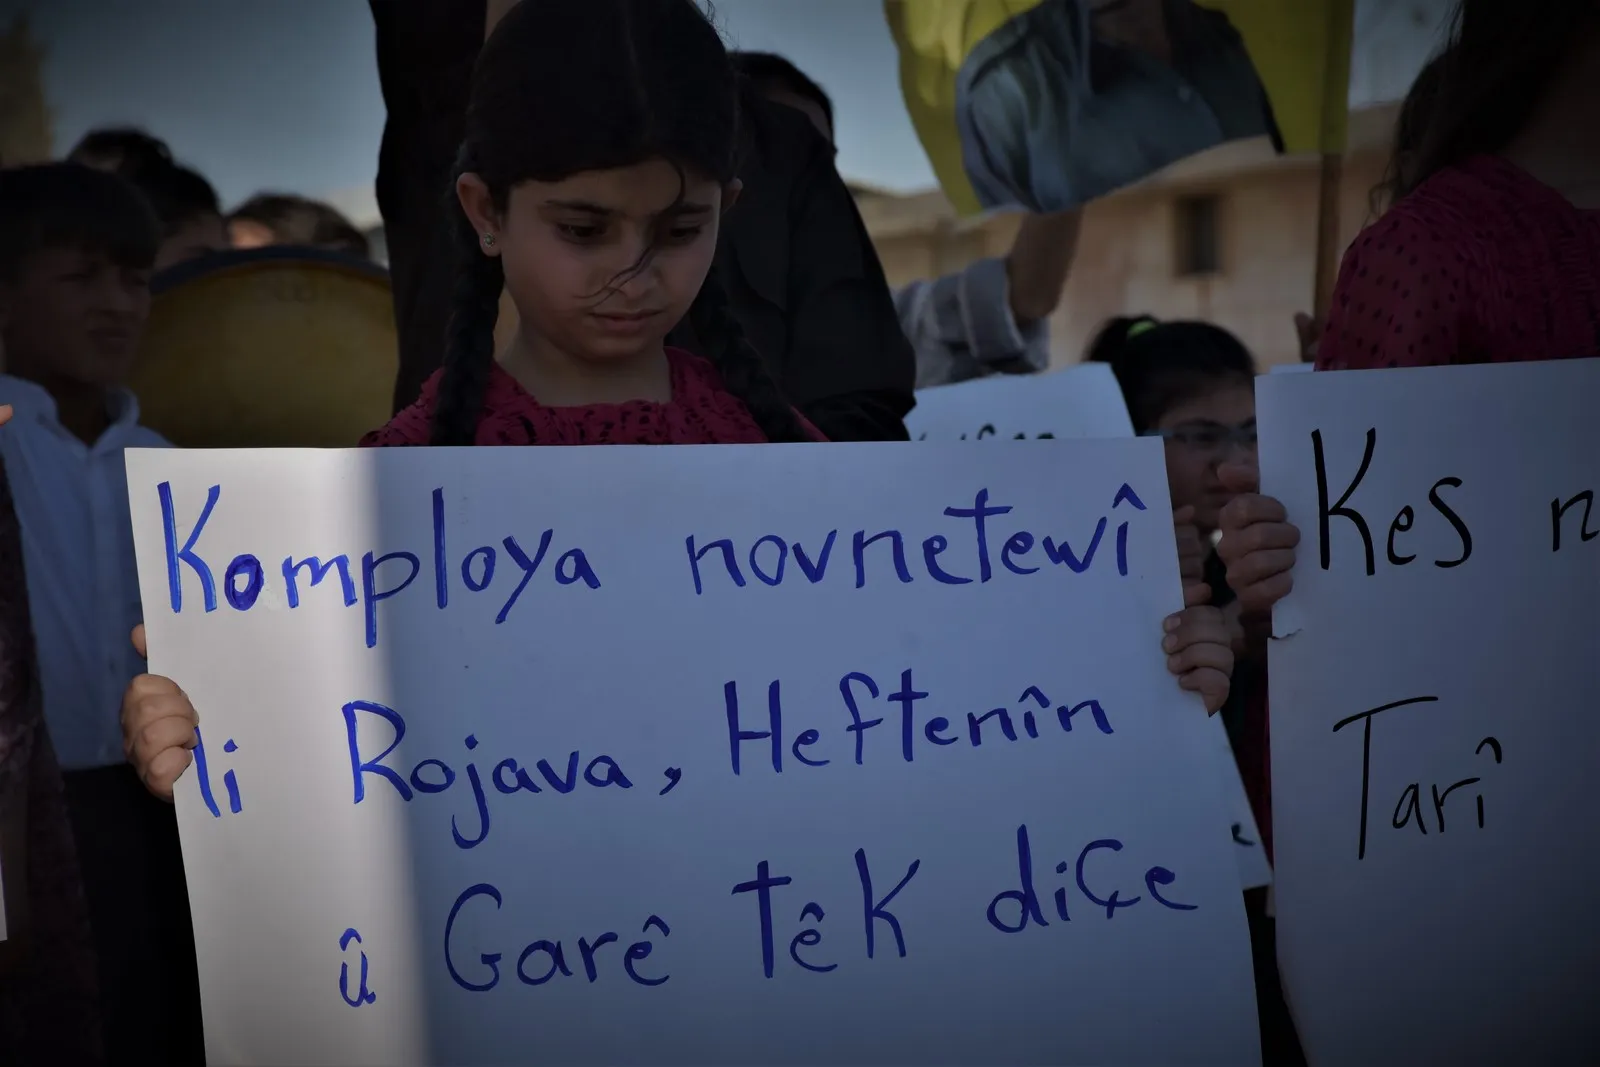 Komploya novnetewî
li Rojava, Heftenîn
û Garê têk diçe
Kes
Tarî